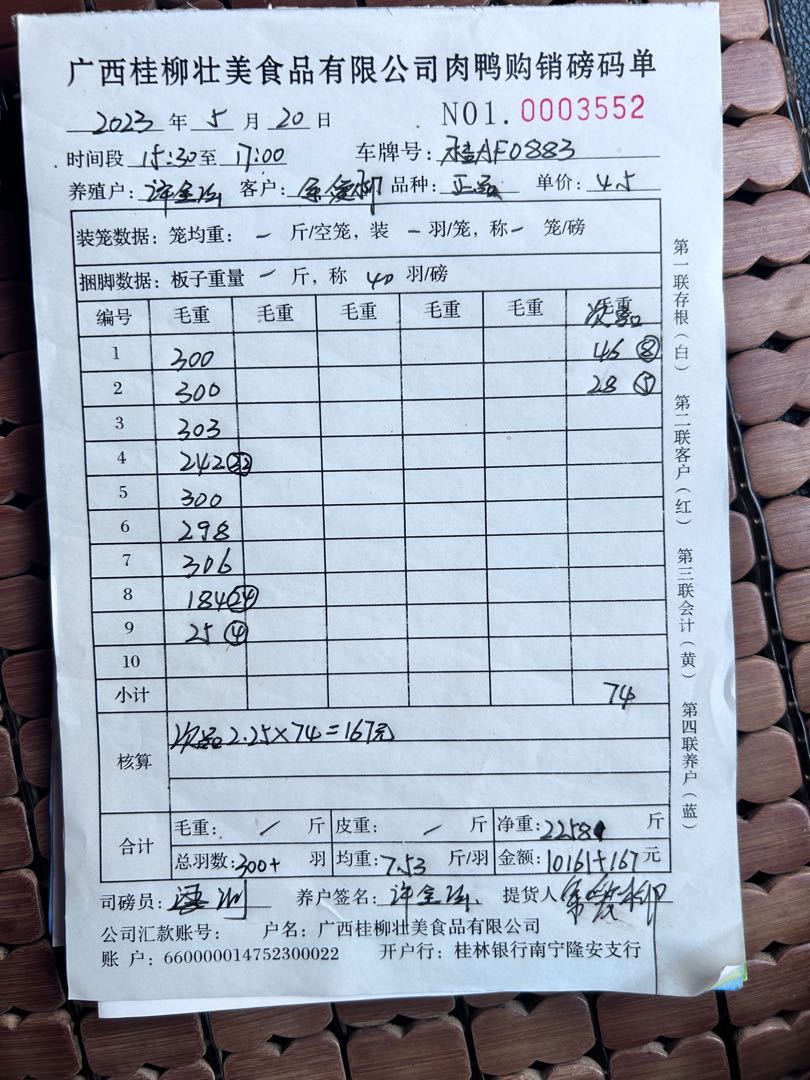 广西桂柳壮美食品有限公司肉鸭购销磅码单
2023 年 5 月 20 日 NO1. 0003552
时间段 15:30 至 17:00 车牌号: 桂AF0883
养殖户: 许金 客户: 品种: 正品 单价: 4.5
装笼数据: 笼均重: - 斤/空笼, 装 - 羽/笼, 称 - 笼/磅
捆脚数据: 板子重量 - 斤, 称 40 羽/磅
编号 毛重 毛重 毛重 毛重 毛重 毛重 次品
1 300 46 ⑧
2 300 28 ⑤
3 303
4 242 ㉜
5 300
6 298
7 306
8 184 ㉔
9 25 ④
10
小计 74
核算 次品2.25×74=167元
合计 毛重: / 斤 皮重: / 斤 净重: 2258 斤
总羽数: 300+ 羽 均重: 7.53 斤/羽 金额: 10161+167 元
司磅员: 养户签名: 许金 提货人
公司汇款账号: 户名: 广西桂柳壮美食品有限公司
账 户: 660000014752300022 开户行: 桂林银行南宁隆安支行
第一联存根(白) 第二联客户(红) 第三联会计(黄) 第四联养户(蓝)